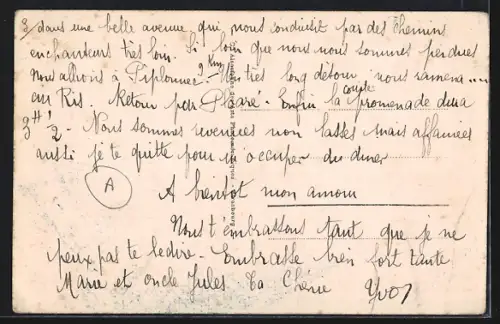 3/ dans une belle avenue qui nous conduisit par des chemins
enchanteurs très loin. Si loin que nous nous sommes perdues
nous allions à 9 km Un très long détour nous ramena ....
au Ris. Retour par Ploaré. Enfin la courte promenade dura
3H 1/2. Nous sommes revenues non lasses mais affamées
aussi je te quitte pour m'occuper du diner
A
A bientôt mon amour
Nous t'embrassons tant que je ne
peux pas te le dire. Embrasse bien fort tante
Marie et oncle Jules ta Chérie